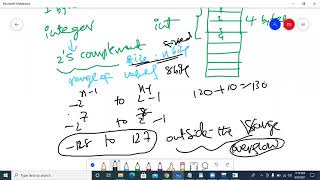 Microsoft Whiteboard
1 byte
integer
int
4 bytes
2's complement
size : n bits
signed
range of values
8 bits
-2^(n-1) to 2^(n-1) -1
120 + 10 = 130
-2^7 to 2^7 -1
-128 to 127
outside the range
overflow